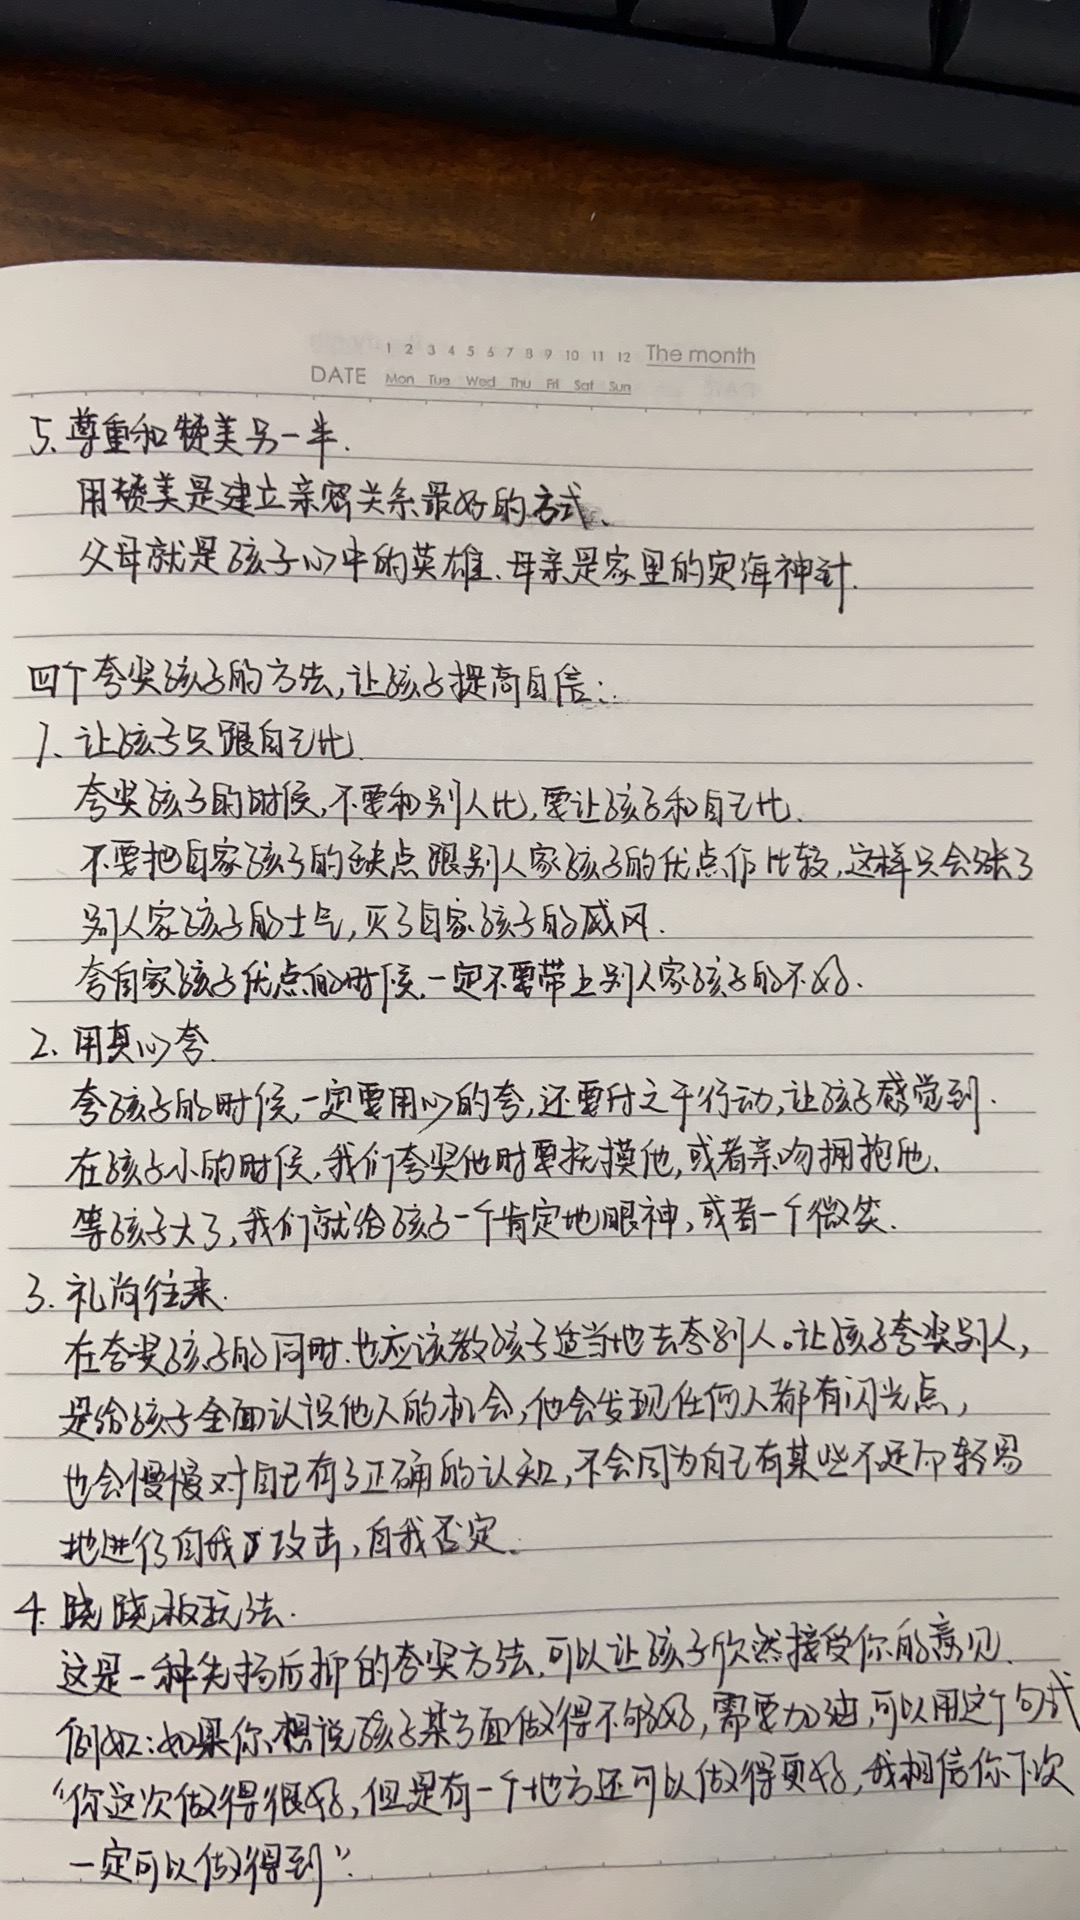 1 2 3 4 5 6 7 8 9 10 11 12 The month
DATE Mon Tue Wed Thu Fri Sat Sun
5、尊重和赞美另一半.
用赞美是建立亲密关系最好的方式、
父母就是孩子心中的英雄、母亲是家里的定海神针.
四个夸奖孩子的方法,让孩子提高自信:
1、让孩子只跟自己比.
夸奖孩子的时候,不要和别人比,要让孩子和自己比、
不要把自家孩子的缺点跟别人家孩子的优点作比较,这样只会涨了
别人家孩子的士气,灭了自家孩子的威风.
夸自家孩子优点的时候、一定不要带上别人家孩子的不好.
2、用真心夸.
夸孩子的时候,一定要用心的夸,还要付之于行动,让孩子感觉到.
在孩子小的时候,我们夸奖他时要抚摸他,或者亲吻拥抱他.
等孩子大了,我们就给孩子一个肯定地眼神,或者一个微笑.
3、礼尚往来.
在夸奖孩子的同时、也应该教孩子适当地去夸别人。让孩子夸奖别人,
是给孩子全面认识他人的机会,他会发现任何人都有闪光点,
也会慢慢对自己有了正确的认知,不会因为自己有某些不足而轻易
地进行自我攻击,自我否定.
4、跷跷板玩法.
这是一种先扬后抑的夸奖方法,可以让孩子欣然接受你的意见.
例如:如果你想说孩子某方面做得不够好,需要加油,可以用这个句式
“你这次做得很好,但是有一个地方还可以做得更好,我相信你下次
一定可以做得到”.